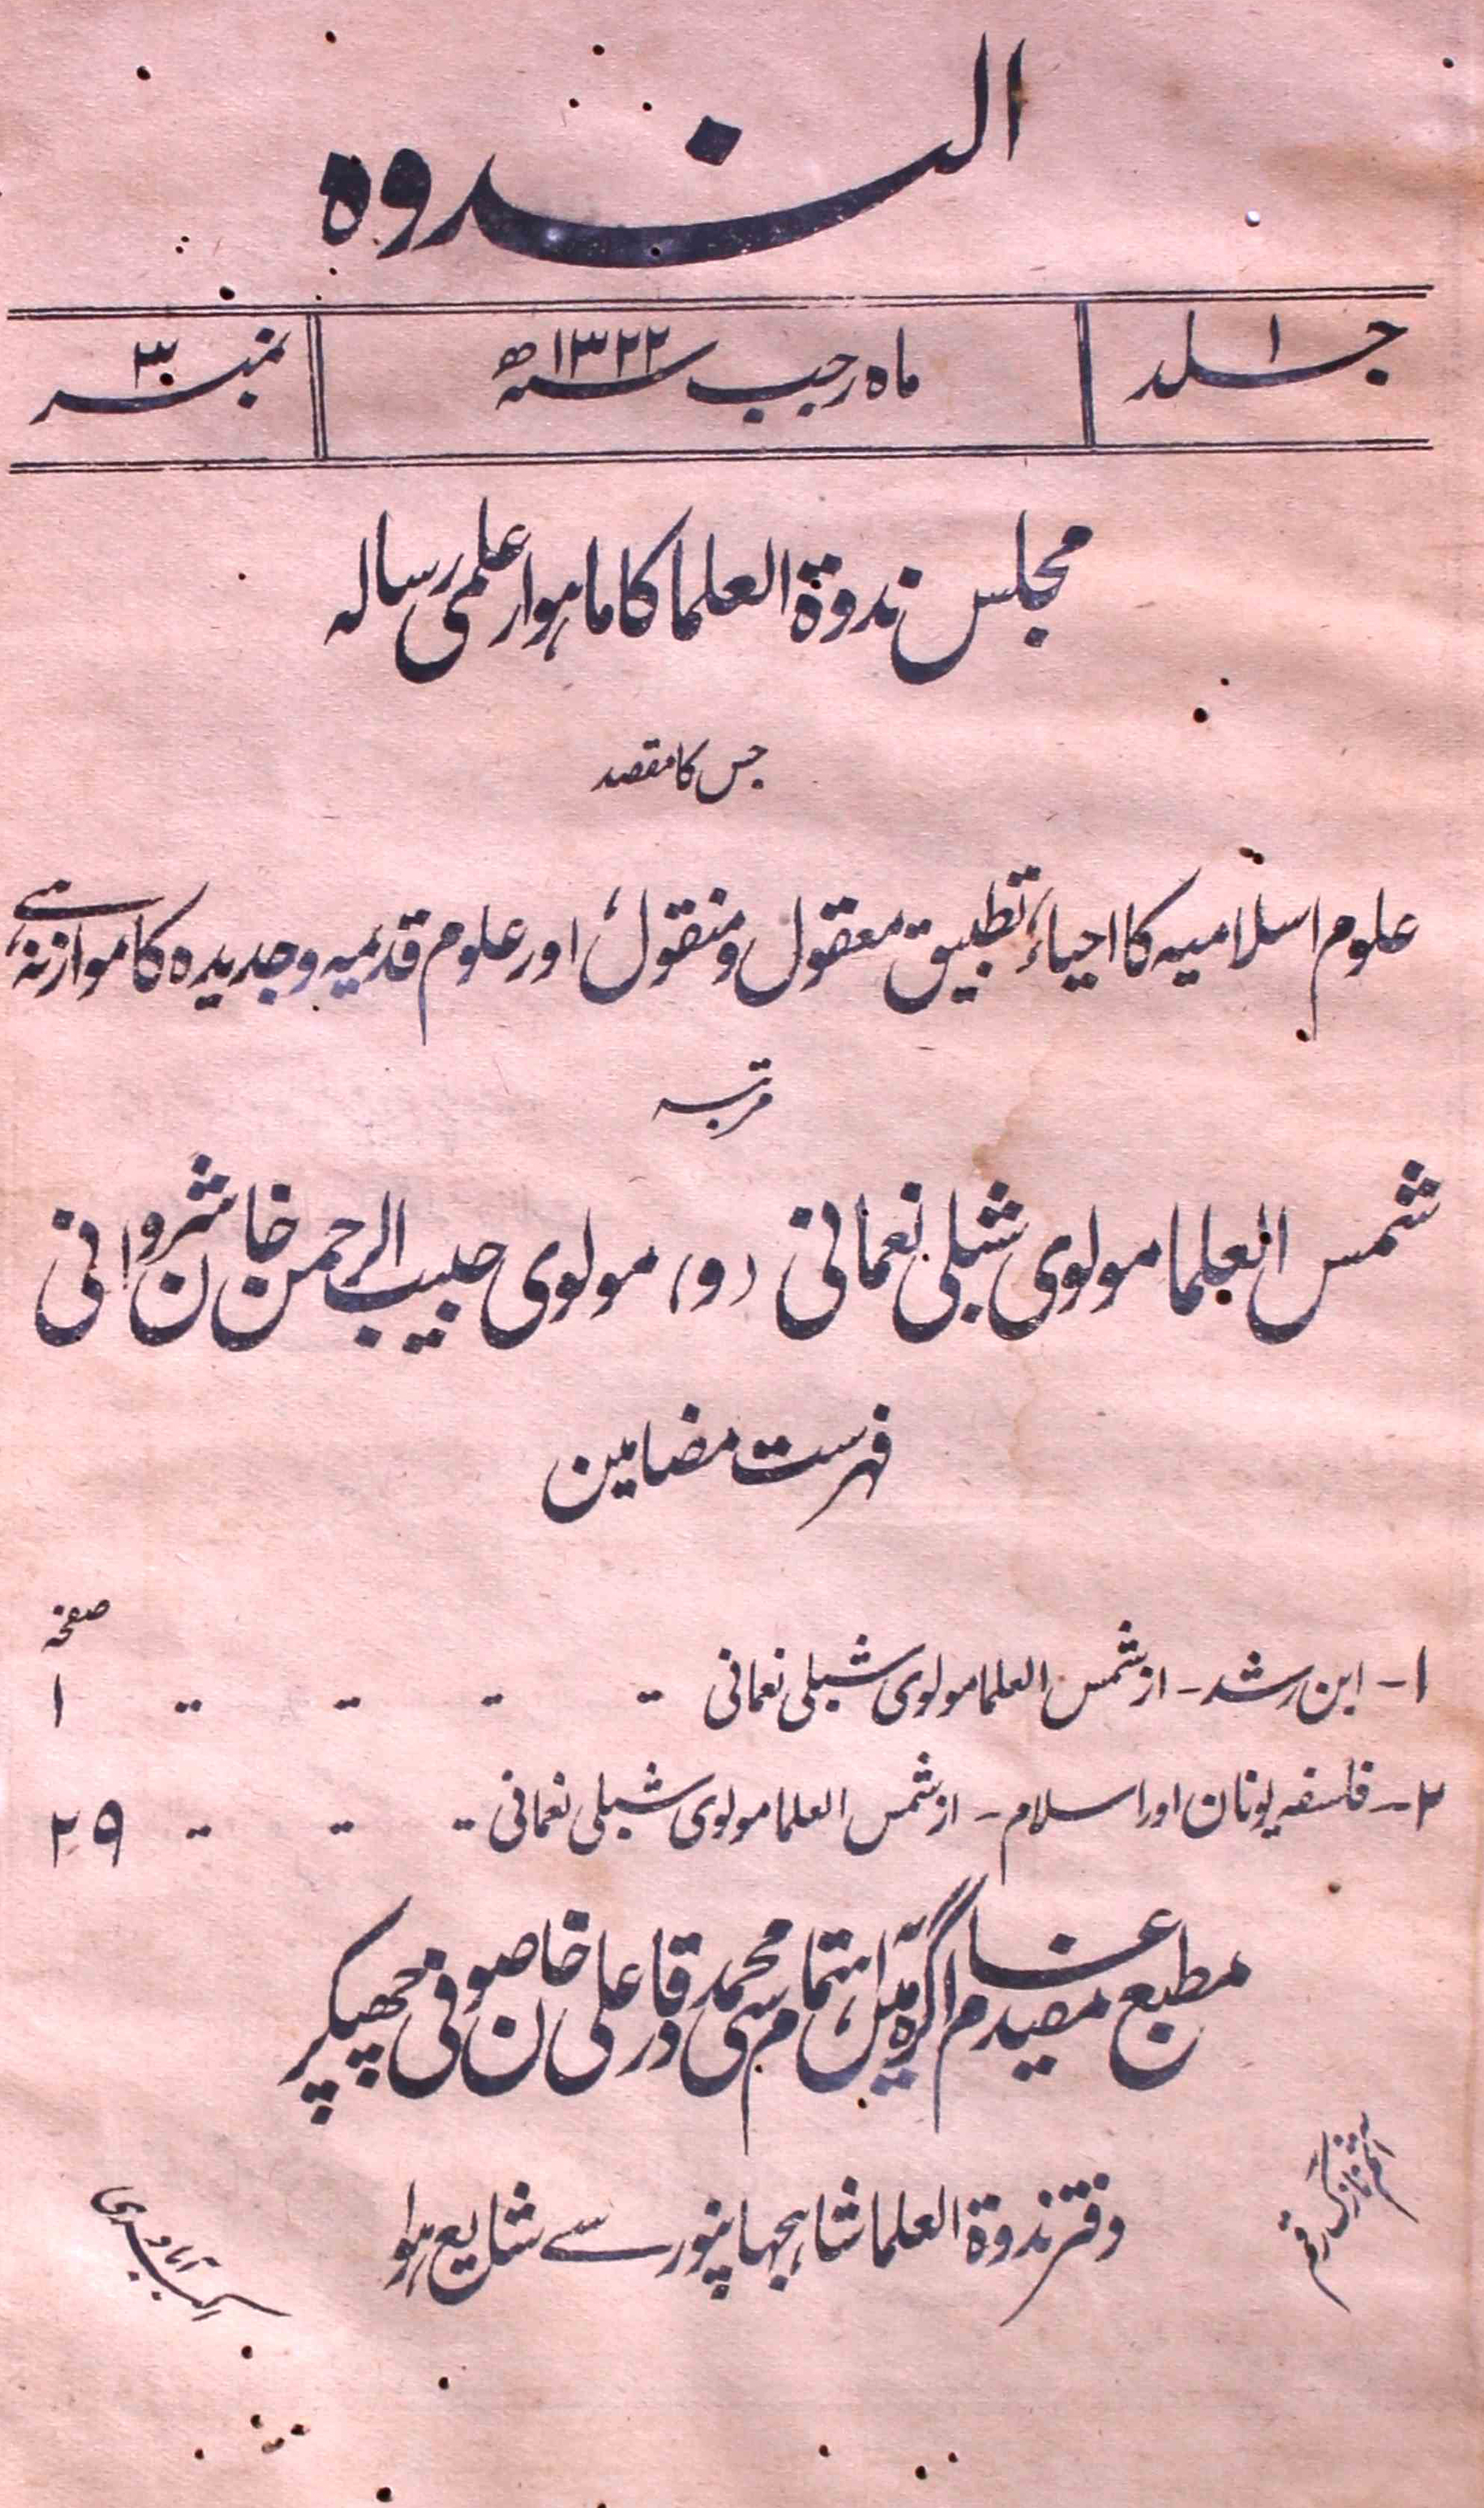 الندوہ
جلد ۱
ماہ رجب سنہ ۱۳۲۲ھ
نمبر ۳
مجلس ندوۃ العلما کا ماہوار علمی رسالہ
جس کا مقصد
علوم اسلامیہ کا احیاء، تطبیق معقول و منقول، اور علوم قدیمہ و جدیدہ کا موازنہ ہے
مرتبہ
شمس العلما مولوی شبلی نعمانی (و) مولوی حبیب الرحمن خان شروانی
فہرست مضامین
صفحہ
۱- ابن رشد - از شمس العلما مولوی شبلی نعمانی ۱
۲- فلسفہ یونان اور اسلام - از شمس العلما مولوی شبلی نعمانی ۲۹
مطبع مفید عام آگرہ میں باہتمام محمد قادر علی خان صوفی چھپکر
دفتر ندوۃ العلما شاہجہانپور سے شایع ہوا
اکبر آبادی